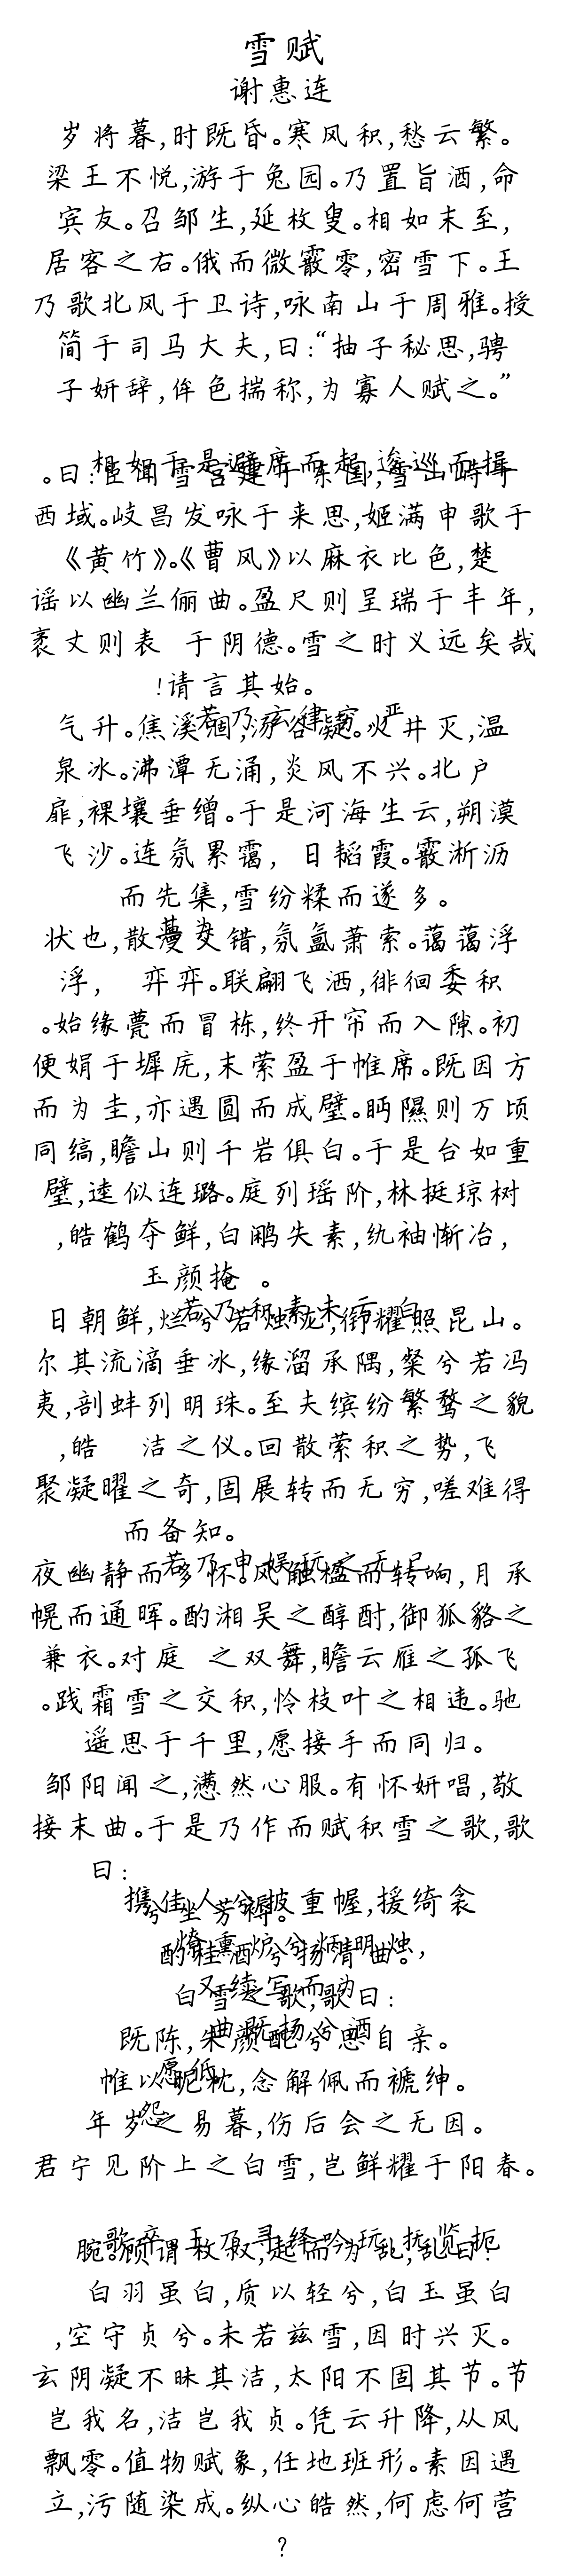 雪赋
谢惠连
岁将暮,时既昏。寒风积,愁云繁。
梁王不悦,游于兔园。乃置旨酒,命
宾友。召邹生,延枚叟。相如末至,
居客之右。俄而微霰零,密雪下。王
乃歌北风于卫诗,咏南山于周雅。授
简于司马大夫,曰:“抽子秘思,骋
子妍辞,侔色揣称,为寡人赋之。”
相如于是避席而起,逡巡而揖
。曰:臣闻雪宫建于东国,雪山峙于
西域。岐昌发咏于来思,姬满申歌于
《黄竹》。《曹风》以麻衣比色,楚
谣以幽兰俪曲。盈尺则呈瑞于丰年,
袤丈则表 于阴德。雪之时义远矣哉
!请言其始。
若乃玄律穷,严
气升。焦溪涸,汤谷凝。火井灭,温
泉冰。沸潭无涌,炎风不兴。北户
扉,裸壤垂缯。于是河海生云,朔漠
飞沙。连氛累霭, 日韬霞。霰淅沥
而先集,雪纷糅而遂多。
其为
状也,散漫交错,氛氲萧索。蔼蔼浮
浮, 弈弈。联翩飞洒,徘徊委积
。始缘甍而冒栋,终开帘而入隙。初
便娟于墀庑,末萦盈于帷席。既因方
而为圭,亦遇圆而成璧。眄隰则万顷
同缟,瞻山则千岩俱白。于是台如重
璧,逵似连璐。庭列瑶阶,林挺琼树
,皓鹤夺鲜,白鹇失素,纨袖惭冶,
玉颜掩 。
若乃积素未亏,白
日朝鲜,烂兮若烛龙,衔耀照昆山。
尔其流滴垂冰,缘溜承隅,粲兮若冯
夷,剖蚌列明珠。至夫缤纷繁鹜之貌
,皓 洁之仪。回散萦积之势,飞
聚凝曜之奇,固展转而无穷,嗟难得
而备知。
若乃申娱玩之无已,
夜幽静而多怀。风触楹而转响,月承
幌而通晖。酌湘吴之醇酎,御狐貉之
兼衣。对庭 之双舞,瞻云雁之孤飞
。践霜雪之交积,怜枝叶之相违。驰
遥思于千里,愿接手而同归。
邹阳闻之,懑然心服。有怀妍唱,敬
接末曲。于是乃作而赋积雪之歌,歌
曰:
携佳人兮披重幄,援绮衾
兮坐芳褥。
燎熏炉兮炳明烛,
酌桂酒兮扬清曲。
又续写而为
白雪之歌,歌曰:
曲既扬兮酒
既陈,朱颜酡兮思自亲。
愿低
帷以昵枕,念解佩而褫绅。
怨
年岁之易暮,伤后会之无因。
君宁见阶上之白雪,岂鲜耀于阳春。
歌卒。王乃寻绎吟玩,抚览扼
腕。顾谓枚叔,起而为乱,乱曰:
白羽虽白,质以轻兮,白玉虽白
,空守贞兮。未若兹雪,因时兴灭。
玄阴凝不昧其洁,太阳不固其节。节
岂我名,洁岂我贞。凭云升降,从风
飘零。值物赋象,任地班形。素因遇
立,污随染成。纵心皓然,何虑何营
?